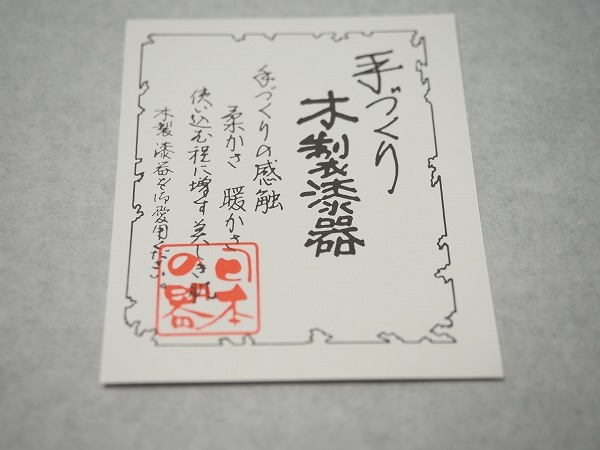 手づくり
木製漆器
手づくりの感触
柔かさ 暖かさ
使い込む程に増す美しき肌
木製漆器を御愛用ください。
日本
の器